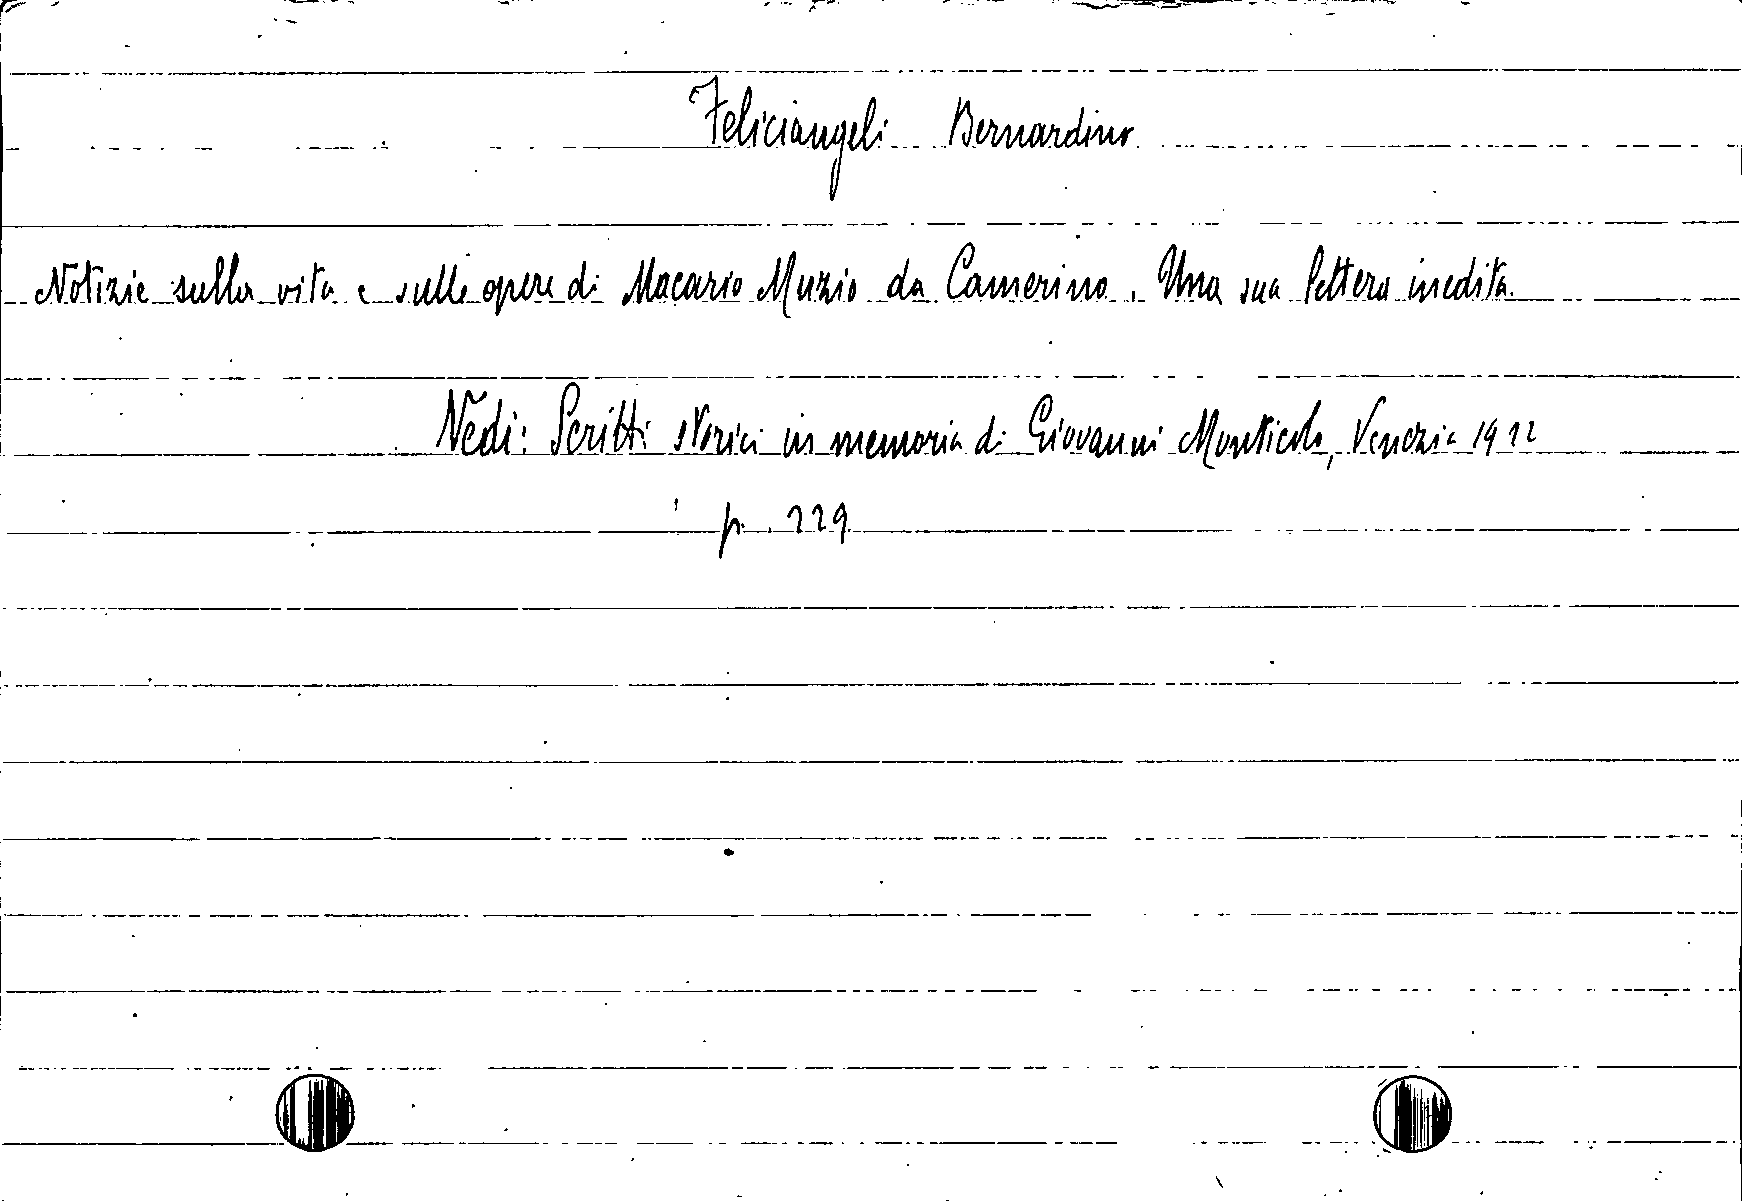 Feliciangeli Bernardino
Notizie sulla vita e sulle opere di Macario Muzio da Camerino. Una sua lettera inedita.
Vedi: Scritti storici in memoria di Giovanni Monticolo, Venezia 1922
p. 229